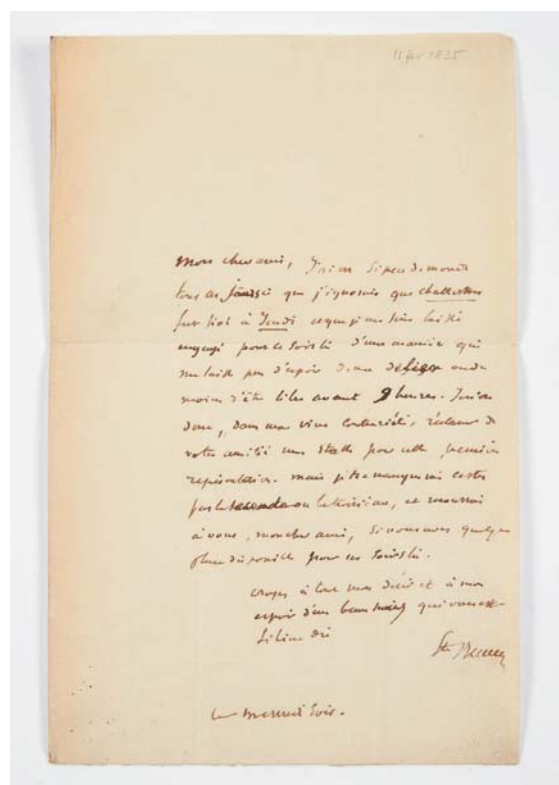 11 fev 1835
Mon cher ami, J'ai vu si peu de monde
tous ces jours-ci que j'ignorais que Chatterton
fut fixé à Jeudi et que je me suis laissé
engagé pour ce soir là d'une manière qui
ne laisse pas d'espoir de me dégager ou du
moins d'être libre avant 9 heures. Je n'ose
donc, dans mon vive contrariété, réclamer de
votre amitié une Stalle pour cette première
représentation. mais je ne manquerai certes
pas la seconde ou la troisième, et recourrai
à vous, mon cher ami, si vous avez quelque
place disponible pour ces soirs là.
croyez à tout mon désir et à mon
espoir d'un beau succès qui vous est
si bien dû
Ste Beuve
ce mercredi soir.